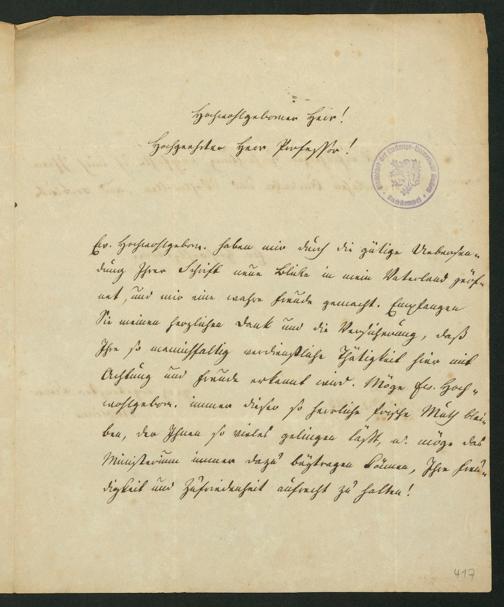 Hochwohlgeborner Herr!
Hochgeehrter Herr Professor!
Ew. Hochwohlgebor. haben mir durch die gütige Uebersen-
dung Ihrer Schrift neue Blicke in mein Vaterland geöff-
net, und mir eine wahre Freude gemacht. Empfangen
Sie meinen herzlichen Dank und die Versicherung, daß
Ihre so mannichfaltig verdienstliche Thätigkeit hier mit
Achtung und Freude erkannt wird. Möge Ew. Hoch-
wohlgebor. immer dieser so herrliche frische Muth blei-
ben, der Ihnen so vieles gelingen läßt, u. möge das
Ministerium immer dazu beytragen können, Ihre Freu-
digkeit und Zufriedenheit aufrecht zu halten!
417